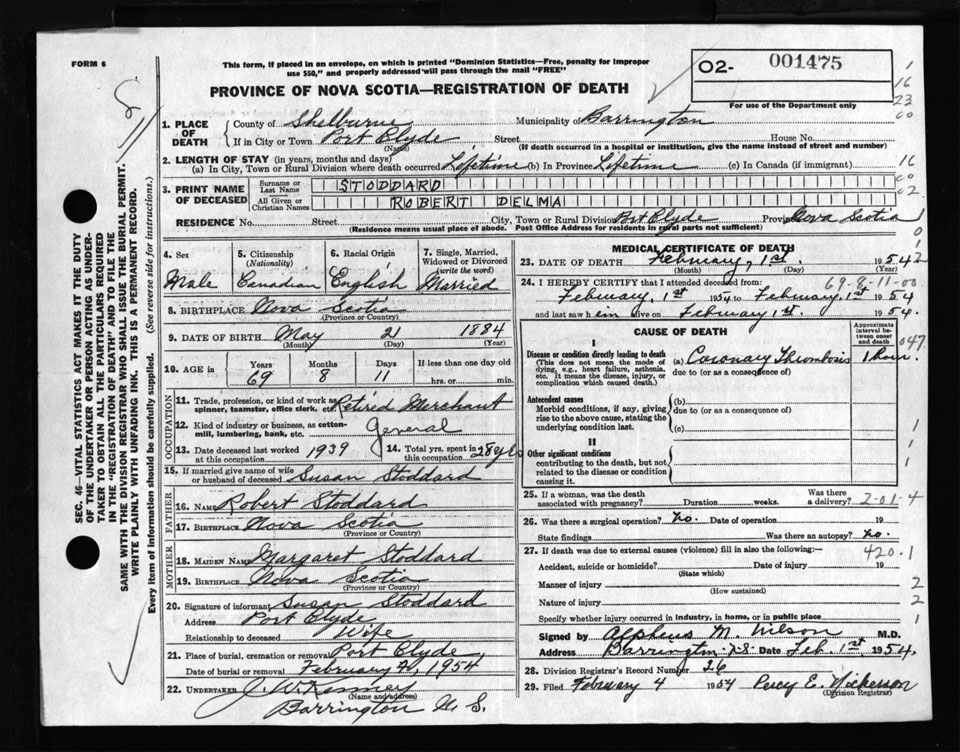 FORM 6
This form, if placed in an envelope, on which is printed "Dominion Statistics—Free, penalty for improper
use $50," and properly addressed will pass through the mail "FREE"
PROVINCE OF NOVA SCOTIA—REGISTRATION OF DEATH
02- 001475
For use of the Department only
1
16
23
00
1. PLACE OF DEATH
County of Shelburne Municipality of Barrington
If in City or Town Port Clyde Street House No.
(Name) (If death occurred in a hospital or institution, give the name instead of street and number)
2. LENGTH OF STAY (in years, months and days)
(a) In City, Town or Rural Division where death occurred Lifetime (b) In Province Lifetime (c) In Canada (if immigrant)
16
00
02
3. PRINT NAME OF DECEASED
Surname or Last Name STODDARD
All Given or Christian Names ROBERT DELMA
RESIDENCE No. Street City, Town or Rural Division Port Clyde Province Nova Scotia
(Residence means usual place of abode. Post Office Address for residents in rural parts not sufficient)
4. Sex
Male
5. Citizenship
(Nationality)
Canadian
6. Racial Origin
English
7. Single, Married,
Widowed or Divorced
(write the word)
Married
8. BIRTHPLACE Nova Scotia
(Province or Country)
9. DATE OF BIRTH May 21 1884
(Month) (Day) (Year)
10. AGE in
Years Months Days If less than one day old
69 8 11 hrs. or min.
OCCUPATION
11. Trade, profession or kind of work as
spinner, teamster, office clerk, etc. Retired Merchant
12. Kind of industry or business, as cotton-
mill, lumbering, bank, etc. General
13. Date deceased last worked
at this occupation 1939
14. Total yrs. spent in
this occupation 28 yrs
15. If married give name of wife
or husband of deceased Susan Stoddard
FATHER
16. NAME Robert Stoddard
17. BIRTHPLACE Nova Scotia
(Province or Country)
MOTHER
18. MAIDEN NAME Margaret Stoddard
19. BIRTHPLACE Nova Scotia
(Province or Country)
20. Signature of informant Susan Stoddard
Address Port Clyde
Relationship to deceased Wife
21. Place of burial, cremation or removal Port Clyde
Date of burial or removal February 1954
22. UNDERTAKER J. W. Kenney
(Name and address)
Barrington N. S.
MEDICAL CERTIFICATE OF DEATH
23. DATE OF DEATH February, 1st. 1954
(Month) (Day) (Year)
24. I HEREBY CERTIFY that I attended deceased from:
69-8-11-00
February, 1st 1954 to February, 1st 1954
and last saw h im alive on February 1st. 1954.
CAUSE OF DEATH
Approximate
interval be-
tween onset
and death
047
I
Disease or condition directly leading to death
(This does not mean the mode of
dying, e.g., heart failure, asthenia,
etc. It means the disease, injury, or
complication which caused death.)
(a) Coronary Thrombosis 1 hour
due to (or as a consequence of)
Antecedent causes
Morbid conditions, if any, giving
rise to the above cause, stating the
underlying condition last.
(b)
due to (or as a consequence of)
(c)
II
Other significant conditions
contributing to the death, but not
related to the disease or condition
causing it.
25. If a woman, was the death
associated with pregnancy? Duration weeks. Was there
a delivery?
2-01-4
26. Was there a surgical operation? no. Date of operation 19
State findings Was there an autopsy? no.
27. If death was due to external causes (violence) fill in also the following:—
420.1
Accident, suicide or homicide? Date of injury 19
(State which)
Manner of injury
(How sustained)
2
Nature of injury
2
Specify whether injury occurred in industry, in home, or in public place
1
Signed by Alpheus M. Wilson M.D.
Address Barrington N.S. Date Feb. 1st. 1954.
28. Division Registrar's Record Number 26
29. Filed February 4 1954 Percy E. Nickerson
(Division Registrar)
SEC. 46—VITAL STATISTICS ACT MAKES IT THE DUTY
OF THE UNDERTAKER OR PERSON ACTING AS UNDER-
TAKER TO OBTAIN ALL THE PARTICULARS REQUIRED
IN THE "REGISTRATION OF DEATH" AND TO FILE THE
SAME WITH THE DIVISION REGISTRAR WHO SHALL ISSUE THE BURIAL PERMIT.
WRITE PLAINLY WITH UNFADING INK. THIS IS A PERMANENT RECORD.
Every item of information should be carefully supplied. (See reverse side for instructions.)